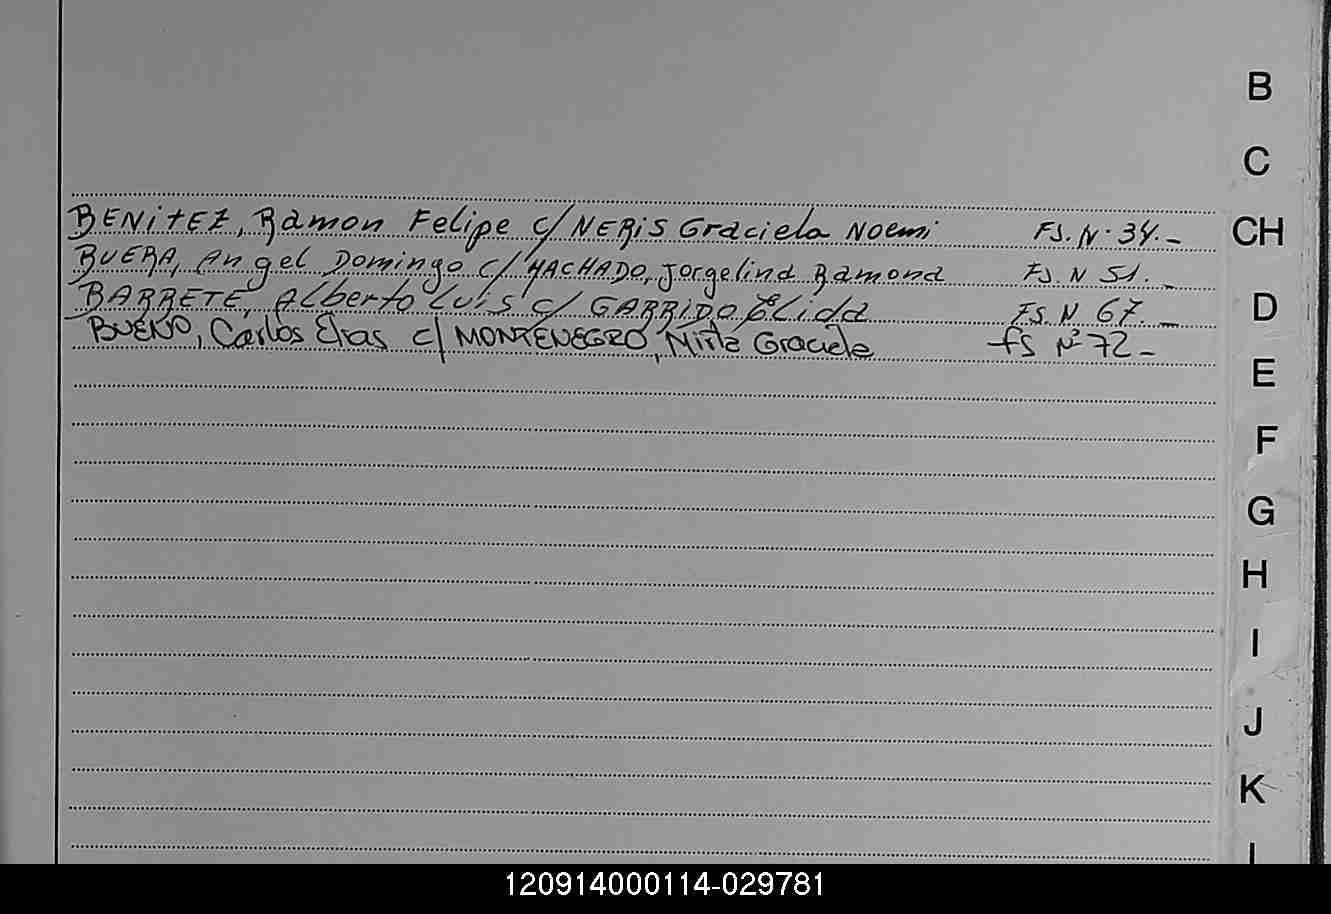 B
C
BENITEZ, Ramon Felipe c/ NERIS Graciela Noemi FS. N. 34.-
CH
BUERA, Angel Domingo c/ MACHADO, Jorgelina Ramona FS. N 51. -
BARRETE, Alberto Luis c/ GARRIDO Elida FS. N 67. -
D
BUENO, Carlos Elias c/ MONTENEGRO, Mirta Graciela fs Nº 72 -
E
F
G
H
I
J
K
120914000114-029781